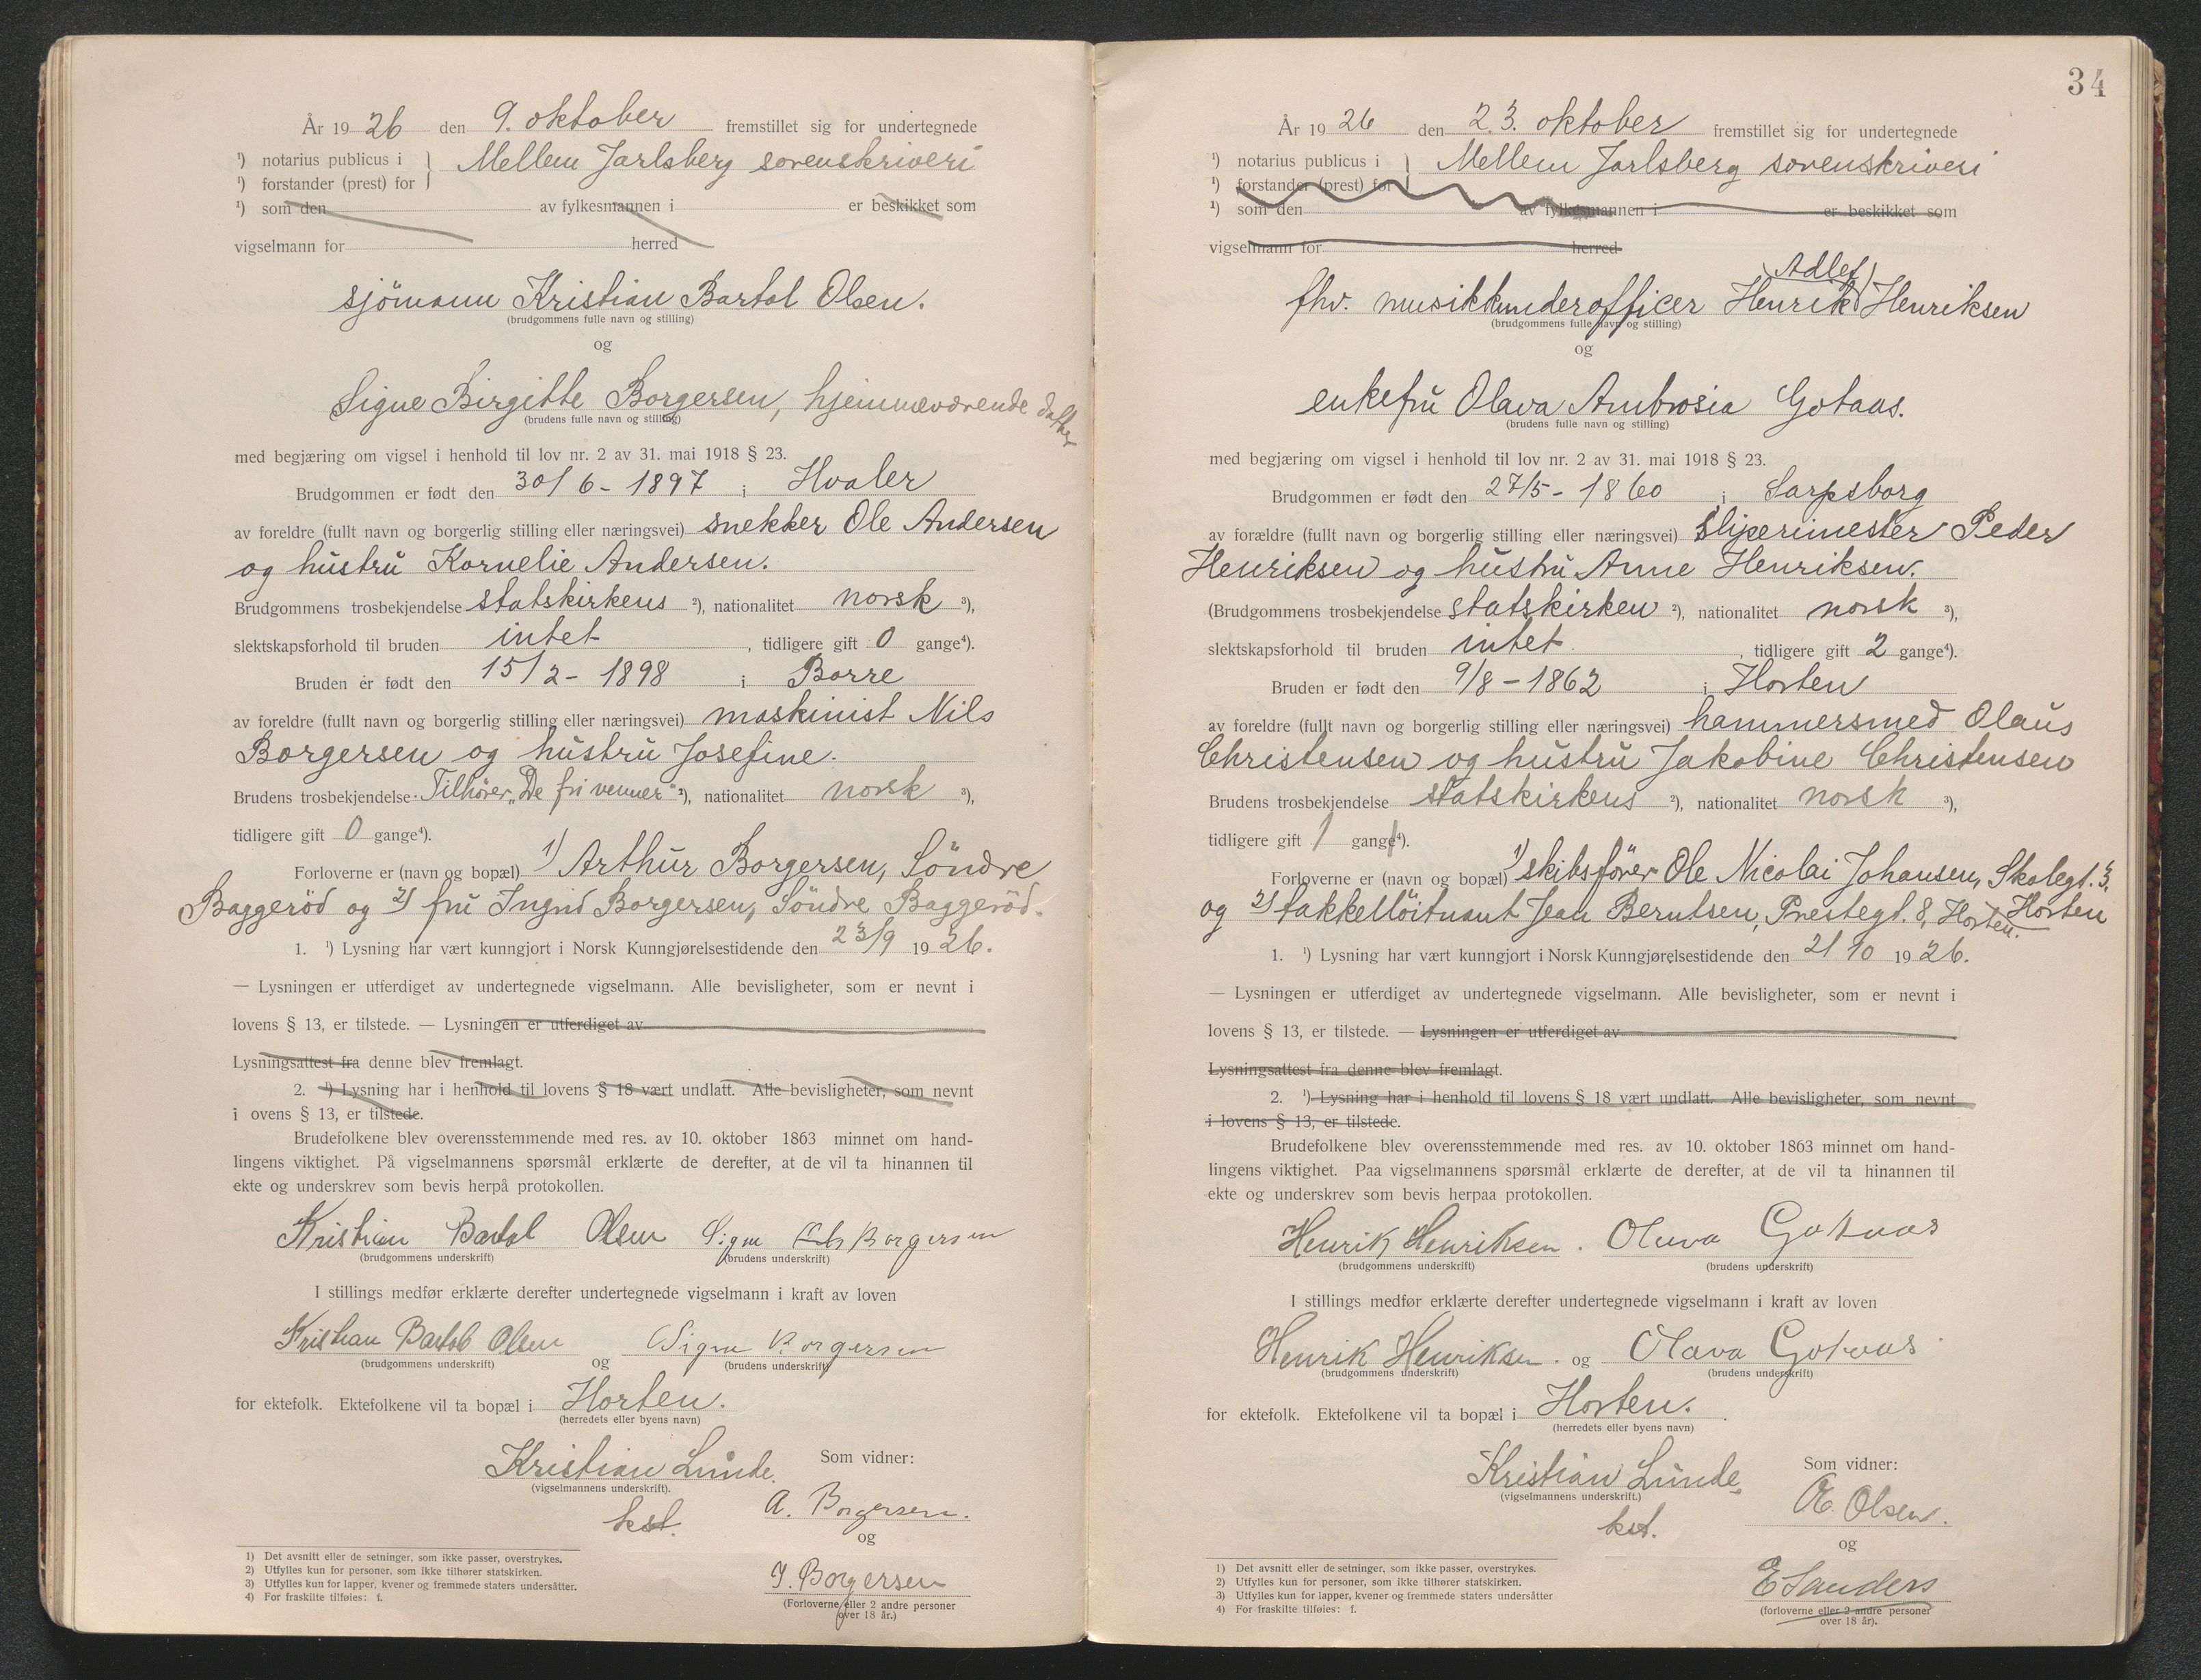 År 1926 den 9. oktober fremstillet sig for undertegnede
¹) notarius publicus i } Mellem Jarlsberg sorenskriveri
¹) forstander (prest) for
¹) som den av fylkesmannen i er beskikket som
vigselmann for herred
sjömann Kristian Bartol Olsen.
(brudgommens fulle navn og stilling)
og
Signe Birgitte Borgersen, hjemmeværende datter
(brudens fulle navn og stilling)
med begjæring om vigsel i henhold til lov nr. 2 av 31. mai 1918 § 23.
Brudgommen er født den 30/6 - 1897 i Hvaler
av foreldre (fullt navn og borgerlig stilling eller næringsvei) snekker Ole Andersen
og hustru Kornelie Andersen.
Brudgommens trosbekjendelse statskirkens ²), nationalitet norsk ³),
slektskapsforhold til bruden intet, tidligere gift 0 gange⁴).
Bruden er født den 15/2 - 1898 i Borre
av foreldre (fullt navn og borgerlig stilling eller næringsvei) maskinist Nils
Borgersen og hustru Josefine.
Brudens trosbekjendelse Tilhører „De fri venner" ²), nationalitet norsk ³),
tidligere gift 0 gange⁴).
Forloverne er (navn og bopæl) 1) Arthur Borgersen, Söndre
Baggeröd og 2) fru Ingrid Borgersen, Söndre Baggeröd.
1. ¹) Lysning har vært kunngjort i Norsk Kunngjørelsestidende den 23/9 1926.
— Lysningen er utferdiget av undertegnede vigselmann. Alle bevisligheter, som er nevnt i
lovens § 13, er tilstede. — Lysningen er utferdiget av
Lysningsattest fra denne blev fremlagt.
2. ¹) Lysning har i henhold til lovens § 18 vært undlatt. Alle bevisligheter, som nevnt
i ovens § 13, er tilstede.
Brudefolkene blev overensstemmende med res. av 10. oktober 1863 minnet om hand-
lingens viktighet. På vigselmannens spørsmål erklærte de derefter, at de vil ta hinannen til
ekte og underskrev som bevis herpå protokollen.
Kristian Bartol Olsen Signe Borgersen
(brudgommens underskrift) (brudens underskrift)
I stillings medfør erklærte derefter undertegnede vigselmann i kraft av loven
Kristian Bartol Olsen og Signe Borgersen
(brudgommens underskrift) (brudens underskrift)
for ektefolk. Ektefolkene vil ta bopæl i Horten.
(herredets eller byens navn)
Kristian Lunde, Som vidner:
(vigselmannens underskrift).
kst. A. Borgersen.
og
I. Borgersen
(Forloverne eller 2 andre personer
over 18 år.)
1) Det avsnitt eller de setninger, som ikke passer, overstrykes.
2) Utfylles kun for personer, som ikke tilhører statskirken.
3) Utfylles kun for lapper, kvener og fremmede staters undersåtter.
4) For fraskilte tilføies: f.
34
År 1926 den 23. oktober fremstillet sig for undertegnede
¹) notarius publicus i } Mellem Jarlsberg sorenskriveri
¹) forstander (prest) for
¹) som den av fylkesmannen i er beskikket som
vigselmann for herred
(Adlef)
fhv. musikkunderofficer Henrik Henriksen
(brudgommens fulle navn og stilling)
og
enkefru Olava Ambrosia Gotaas.
(brudens fulle navn og stilling)
med begjæring om vigsel i henhold til lov nr. 2 av 31. mai 1918 § 23.
Brudgommen er født den 27/5 - 1860 i Sarpsborg
av forældre (fullt navn og borgerlig stilling eller næringsvei) sliperimester Peder
Henriksen og hustru Anne Henriksen.
(Brudgommens trosbekjendelse statskirken ²), nationalitet norsk ³),
slektskapsforhold til bruden intet, tidligere gift 2 gange⁴).
Bruden er født den 9/8 - 1862 i Horten
av foreldre (fullt navn og borgerlig stilling eller næringsvei) hammersmed Olaus
Christensen og hustru Jakobine Christensen
Brudens trosbekjendelse statskirkens ²), nationalitet norsk ³),
tidligere gift 1 gange⁴).
Forloverne er (navn og bopæl) 1) skibsfører Ole Nicolai Johansen, Skolegt. 3, Horten
og 2) takkelløitnant Jean Berntsen, Prestegt. 8, Horten.
1. ¹) Lysning har vært kunngjort i Norsk Kunngjørelsestidende den 2/10 1926.
— Lysningen er utferdiget av undertegnede vigselmann. Alle bevisligheter, som er nevnt i
lovens § 13, er tilstede. — Lysningen er utferdiget av
Lysningsattest fra denne blev fremlagt.
2. ¹) Lysning har i henhold til lovens § 18 vært undlatt. Alle bevisligheter, som nevnt
i lovens § 13, er tilstede.
Brudefolkene blev overensstemmende med res. av 10. oktober 1863 minnet om hand-
lingens viktighet. Paa vigselmannens spørsmål erklærte de derefter, at de vil ta hinannen til
ekte og underskrev som bevis herpaa protokollen.
Henrik Henriksen. Olava Gotaas
(brudgommens underskrift) (brudens underskrift)
I stillings medfør erklærte derefter undertegnede vigselmann i kraft av loven
Henrik Henriksen. og Olava Gotaas
(brudgommens underskrift) (brudens underskrift)
for ektefolk. Ektefolkene vil ta bopæl i Horten.
(herredets eller byens navn)
Kristian Lunde, Som vidner:
(vigselmannens underskrift.)
kst. Olsen.
og
E Sanders
(forloverne eller 2 andre personer
over 18 år).
1) Det avsnitt eller de setninger, som ikke passer, overstrykes.
2) Utfylles kun for personer, som ikke tilhører statskirken.
3) Utfylles kun for lapper, kvener og fremmede staters undersåtter
4) For fraskilte tilføies: f.